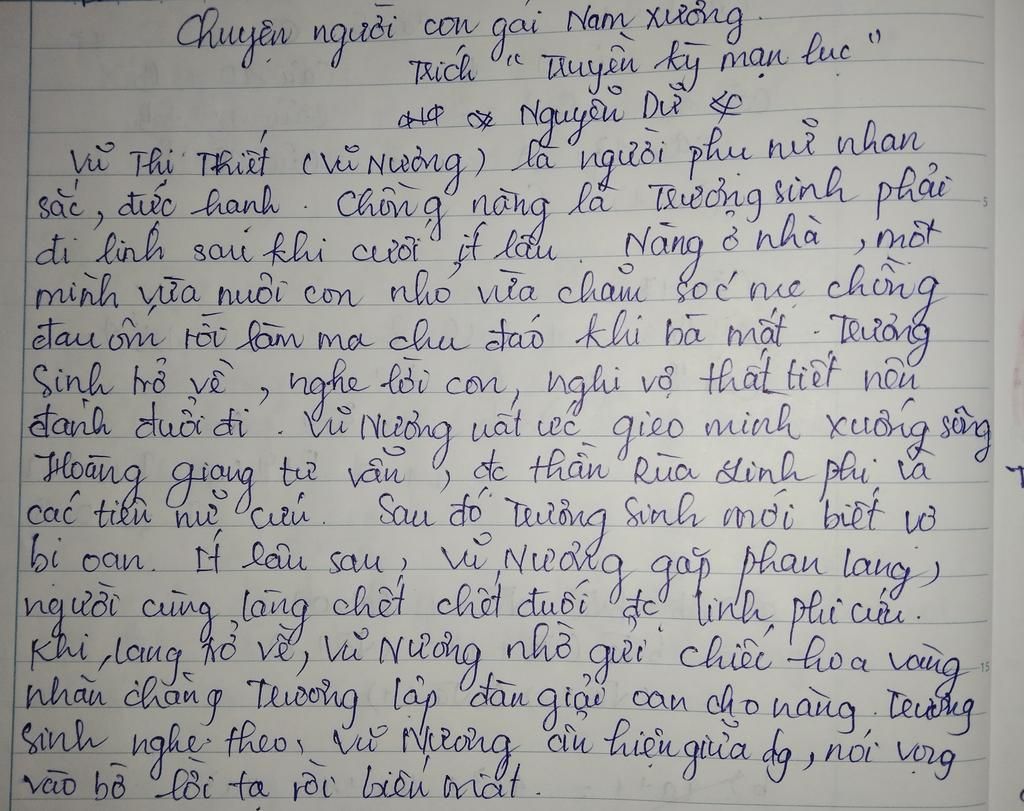 Chuyện người con gái Nam Xương.
Trích " Truyền kỳ mạn lục "
Nguyễn Dữ
Vũ Thị Thiết (Vũ Nương) là người phụ nữ nhan
sắc, đức hạnh. Chồng nàng là Trương sinh phải
đi lính sau khi cưới ít lâu. Nàng ở nhà, một
mình vừa nuôi con nhỏ vừa chăm sóc mẹ chồng
đau ốm rồi làm ma chu đáo khi bà mất. Trương
Sinh trở về, nghe lời con, nghi vợ thất tiết nên
đánh đuổi đi. Vũ Nương uất ức gieo mình xuống sông
Hoàng giang tự vẫn, đc thần Rùa Linh phi và
các tiên nữ cứu. Sau đó Trương Sinh mới biết vợ
bị oan. Ít lâu sau, Vũ Nương gặp phan lang,
người cùng làng chết chết đuối đc linh phi cứu.
Khi, lang trở về, Vũ Nương nhờ gửi chiếc hoa vàng
nhắn chàng Trương lập đàn giải oan cho nàng. Trương
Sinh nghe theo, Vũ Nương ẩn hiện giữa dg, nói vọng
vào bờ lời tạ rồi biến mất.